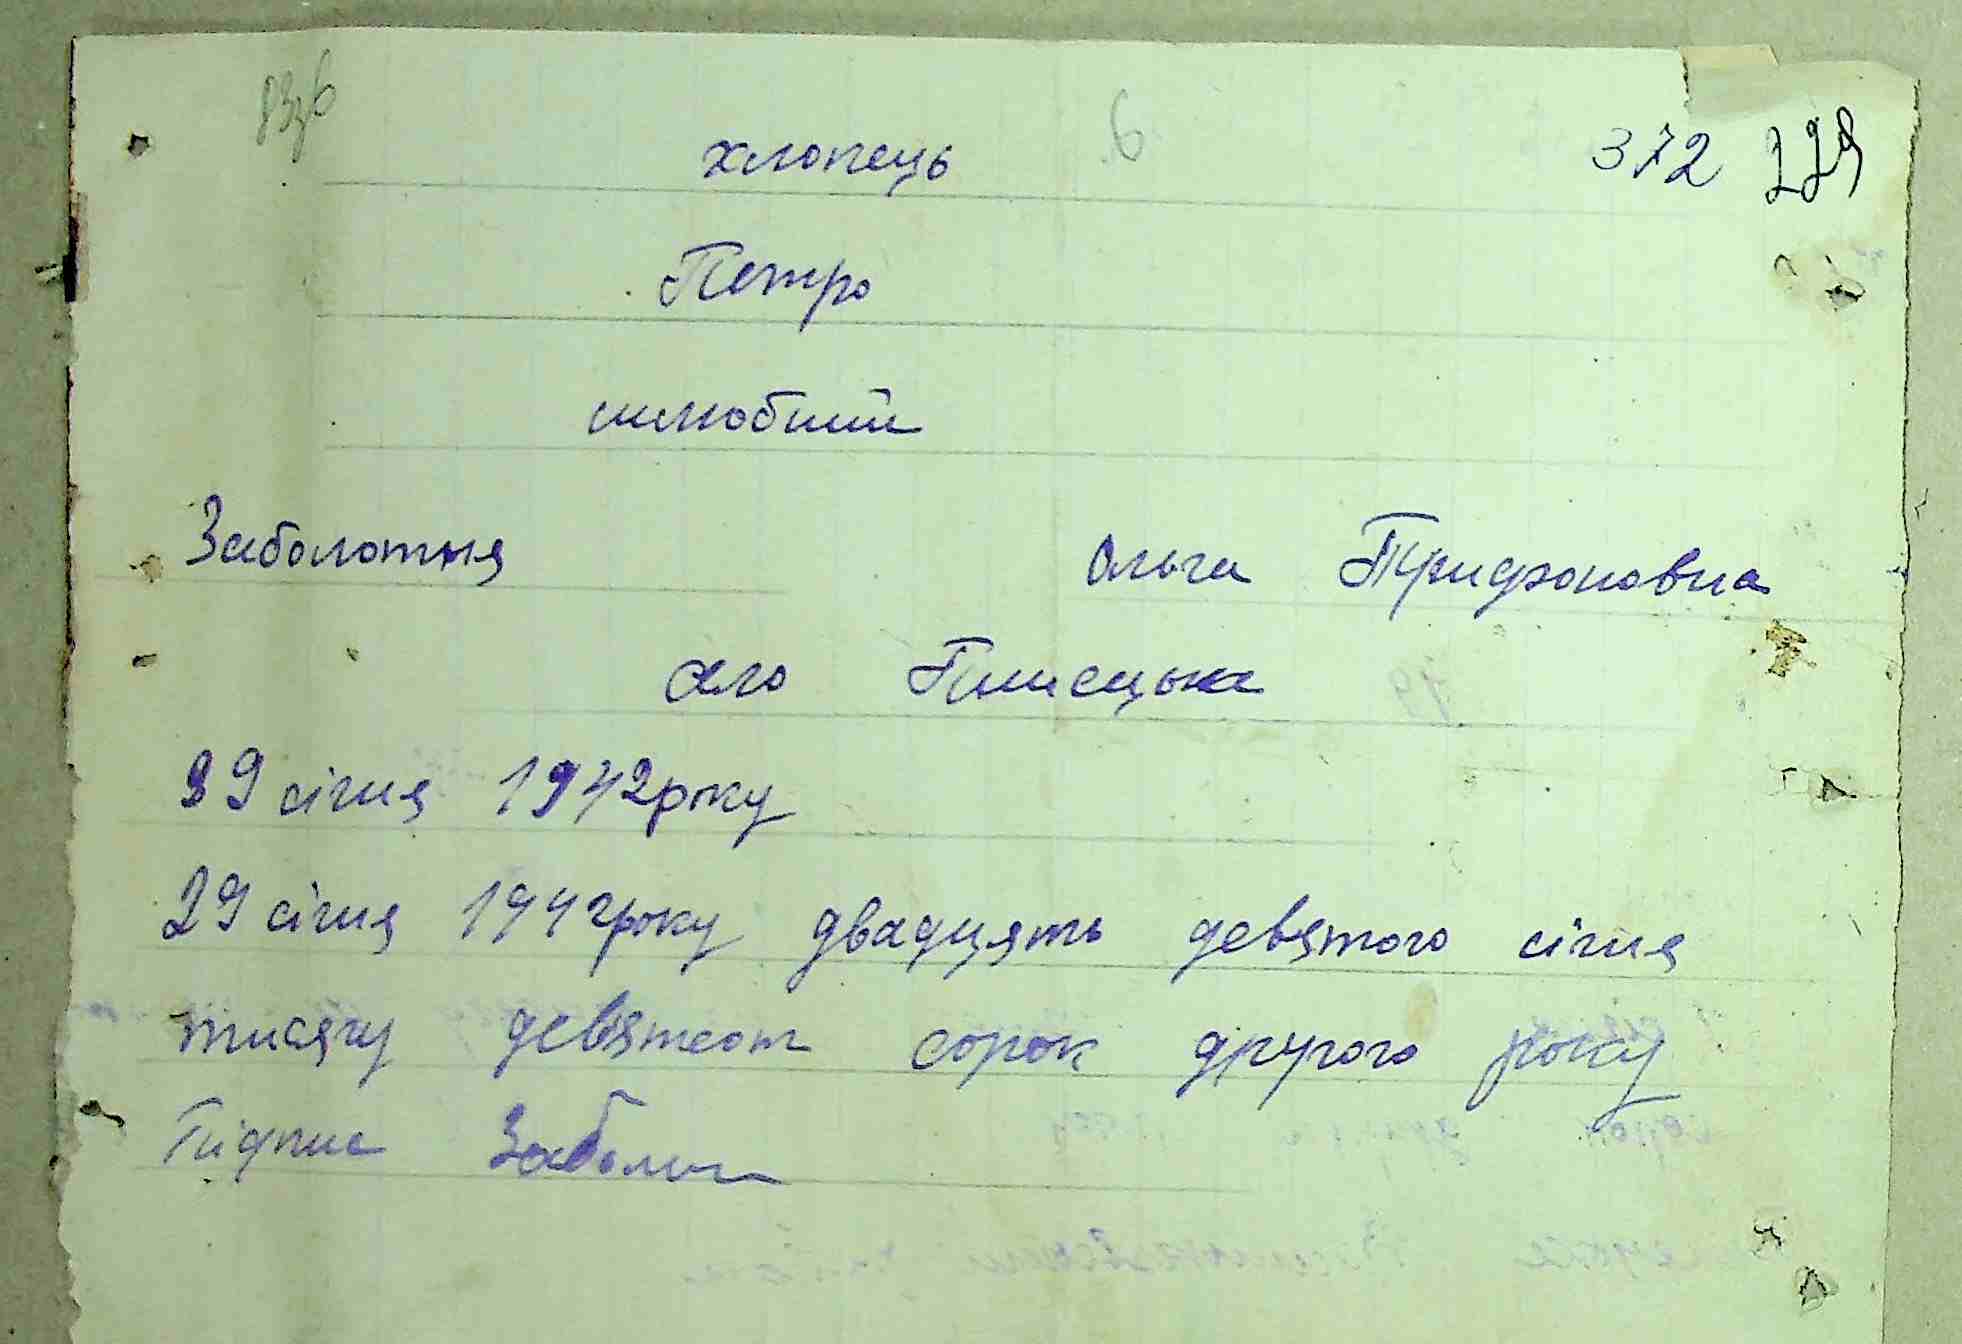 хлопець 372 229
Петро
шлюбний
Заболотня Ольга Трифоновна
село Плисецьке
29 січня 1942 року
29 січня 1942 року двадцять девятого січня
тисячу девятсот сорок другого року
Підпис Заболот